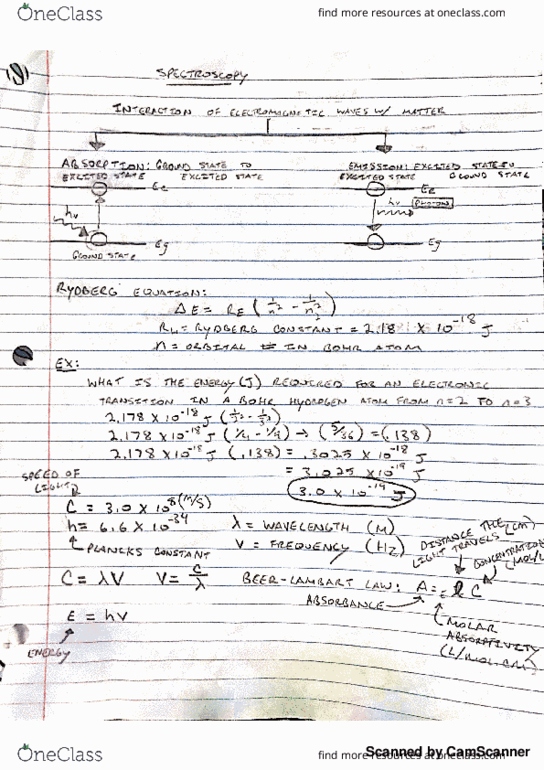 OneClass
find more resources at oneclass.com
SPECTROSCOPY
INTERACTION OF ELECTROMAGNETIC WAVES W/ MATTER
ABSORPTION: GROUND STATE TO
EXCITED STATE EXCITED STATE
EMISSION: EXCITED STATE TO
EXCITED STATE GROUND STATE
Ee
hv
Eg
GROUND STATE
Ee
hv PHOTON
Eg
RYDBERG EQUATION:
ΔE = RE (1/n² - 1/n²)
RH = RYDBERG CONSTANT = 2.18 X 10^-18 J
n = ORBITAL # IN BOHR ATOM
EX:
WHAT IS THE ENERGY (J) REQUIRED FOR AN ELECTRONIC
TRANSITION IN A BOHR HYDROGEN ATOM FROM n=2 TO n=3
2.178 X 10^-18 J (1/2² - 1/3²)
2.178 X 10^-18 J (1/4 - 1/9) → (5/36) = (.138)
2.178 X 10^-18 J (.138) = .3025 X 10^-18
= 3.025 X 10^-19
3.0 X 10^-19 J
SPEED OF
LIGHT
C = 3.0 X 10^8 (m/s)
h = 6.6 X 10^-34
PLANCKS CONSTANT
λ = WAVELENGTH (M)
V = FREQUENCY (HZ)
C = λV V = C/λ
BEER-LAMBART LAW: A = ε l C
DISTANCE THE
LIGHT TRAVELS (CM)
CONCENTRATION
(MOL/L
ABSORBANCE
MOLAR
ABSORPTIVITY
(L/MOL·CM)
E = hv
ENERGY
OneClass
find more resources at oneclass.com
Scanned by CamScanner